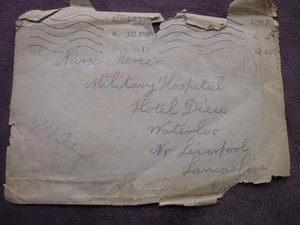 4.30 PM
12 AUG 17
Nurse Mercer
Military Hospital
Hotel Dieu
Waterloo
Nr Liverpool
Lancashire